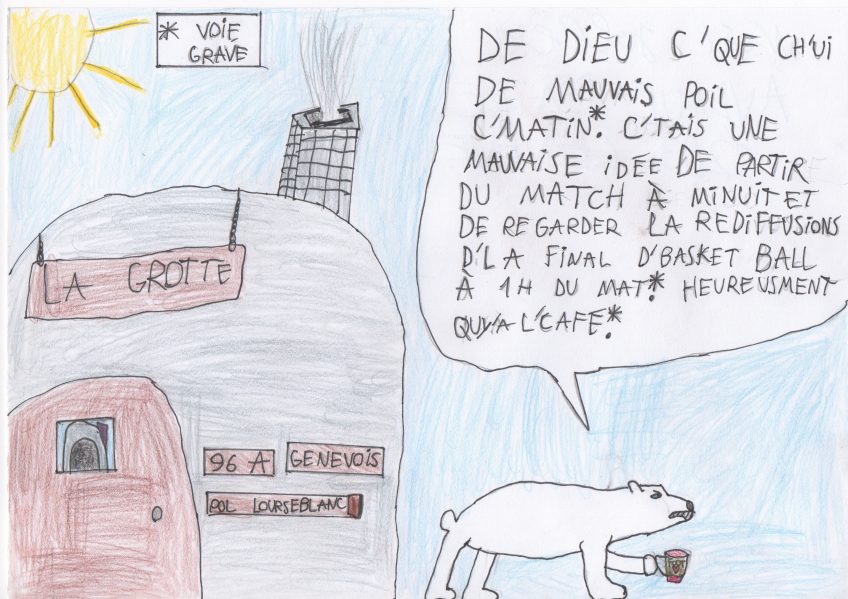 * VOIE
GRAVE
DE DIEU C'QUE CH'UI
DE MAUVAIS POIL
C'MATIN.* C'TAIS UNE
MAUVAISE IDÉE DE PARTIR
DU MATCH À MINUIT ET
DE REGARDER LA REDIFFUSIONS
D'LA FINAL D'BASKET BALL
À 1H DU MAT.* HEUREUSMENT
QUY'A L'CAFE.*
LA GROTTE
96 A
GENEVOIS
POL LOURSEBLANC